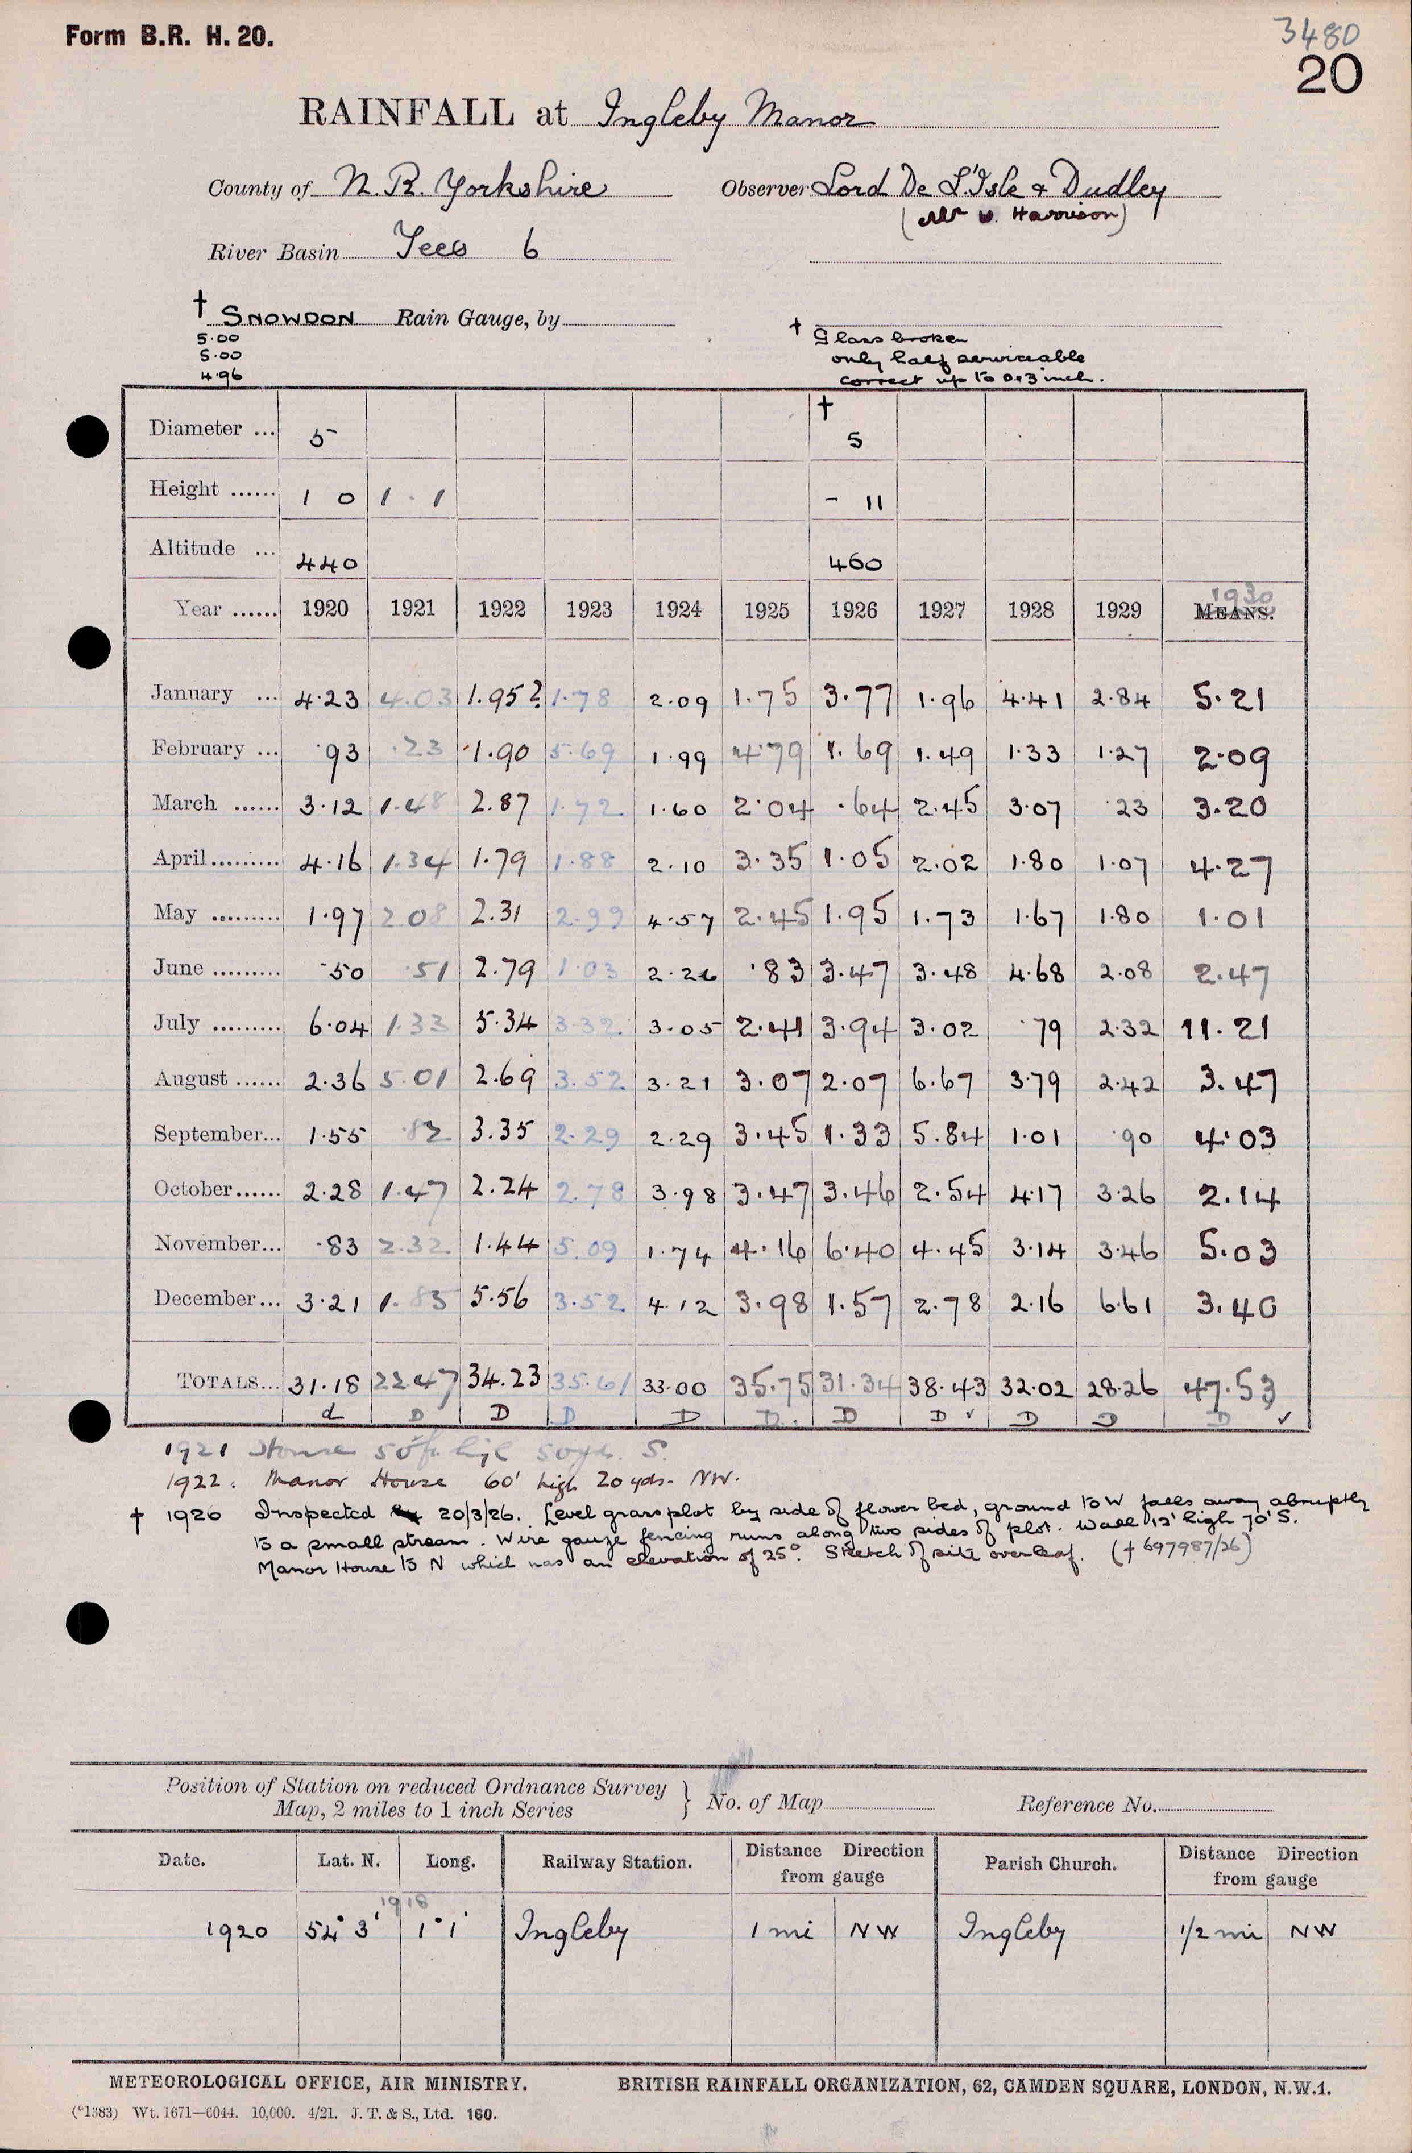 Form B.R. H. 20.
3480
20
RAINFALL at Ingleby Manor
County of N. R. Yorkshire Observer Lord De L'Isle & Dudley
(Mr W. Harrison)
River Basin Tees 6
† SNOWDON Rain Gauge, by
5.00
5.00
4.96
† Glass broken
only half serviceable
correct up to 0.3 inch.
Diameter ... 5 † 5
Height ...... 1 0 1 . 1 - 11
Altitude ... 440 460
Year ...... 1920 1921 1922 1923 1924 1925 1926 1927 1928 1929 MEANS. 1930
January ... 4.23 4.03 1.95? 1.78 2.09 1.75 3.77 1.96 4.41 2.84 5.21
February ... .93 .23 1.90 5.69 1.99 4.79 1.69 1.49 1.33 1.27 2.09
March ...... 3.12 1.48 2.87 1.72 1.60 2.04 .64 2.45 3.07 .23 3.20
April ......... 4.16 1.34 1.79 1.88 2.10 3.35 1.05 2.02 1.80 1.07 4.27
May ......... 1.97 2.08 2.31 2.99 4.57 2.45 1.95 1.73 1.67 1.80 1.01
June ......... .50 .51 2.79 1.03 2.26 .83 3.47 3.48 4.68 2.08 2.47
July ......... 6.04 1.33 5.34 3.32 3.05 2.41 3.94 3.02 .79 2.32 11.21
August ...... 2.36 5.01 2.69 3.52 3.21 3.07 2.07 6.67 3.79 2.42 3.47
September... 1.55 .82 3.35 2.29 2.29 3.45 1.33 5.84 1.01 .90 4.03
October...... 2.28 1.47 2.24 2.78 3.98 3.47 3.46 2.54 4.17 3.26 2.14
November... .83 2.32 1.44 5.09 1.74 4.16 6.40 4.45 3.14 3.46 5.03
December... 3.21 1.85 5.56 3.52 4.12 3.98 1.57 2.78 2.16 6.61 3.40
TOTALS... 31.18 22.47 34.23 35.61 33.00 35.75 31.34 38.43 32.02 28.26 47.53
d D D D D D D D ✓ D D D ✓
1921 House 50 ft high 50 yds. S.
1922. Manor House 60' high 20 yds. NW.
† 1926 Inspected 20/3/26. Level grass plot by side of flower bed, ground to W falls away abruptly
to a small stream. Wire gauze fencing runs along two sides of plot. Wall 12' high 70' S.
Manor House to N which has an elevation of 25°. Sketch of site overleaf. († 697987/26)
Position of Station on reduced Ordnance Survey
Map, 2 miles to 1 inch Series } No. of Map Reference No.
Date. Lat. N. Long. Railway Station. Distance Direction from gauge Parish Church. Distance Direction from gauge
1918
1920 54° 3' 1° 1' Ingleby 1 mi NW Ingleby 1/2 mi NW
METEOROLOGICAL OFFICE, AIR MINISTRY. BRITISH RAINFALL ORGANIZATION, 62, CAMDEN SQUARE, LONDON, N.W.1.
(*1383) Wt. 1671—6044. 10,000. 4/21. J. T. & S., Ltd. 160.